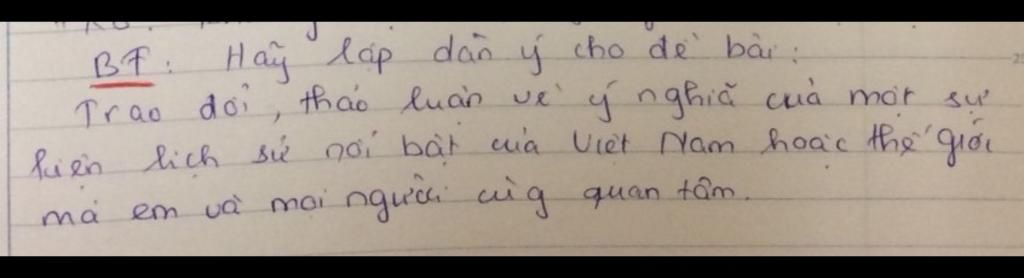 BT: Hãy lập dàn ý cho đề bài:
Trao đổi, thảo luận về ý nghĩa của một sự
kiện lịch sử nổi bật của Việt Nam hoặc thế giới
mà em và mọi người cùg quan tâm.